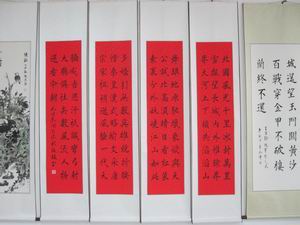 城遥望玉門關黃沙
百戰穿金甲不破樓
蘭終不還
北國風光千里冰封萬里
雪飄望長城內外惟餘莽
莽大河上下頓失滔滔山
舞銀蛇原馳蠟象欲與天
公試比高須晴日看紅裝
素裹分外妖嬈江山如此
多嬌引無數英雄競折腰
惜秦皇漢武略輸文采唐
宗宋祖稍遜風騷一代天
驕成吉思汗只識彎弓射
大雕俱往矣數風流人物
還看今朝